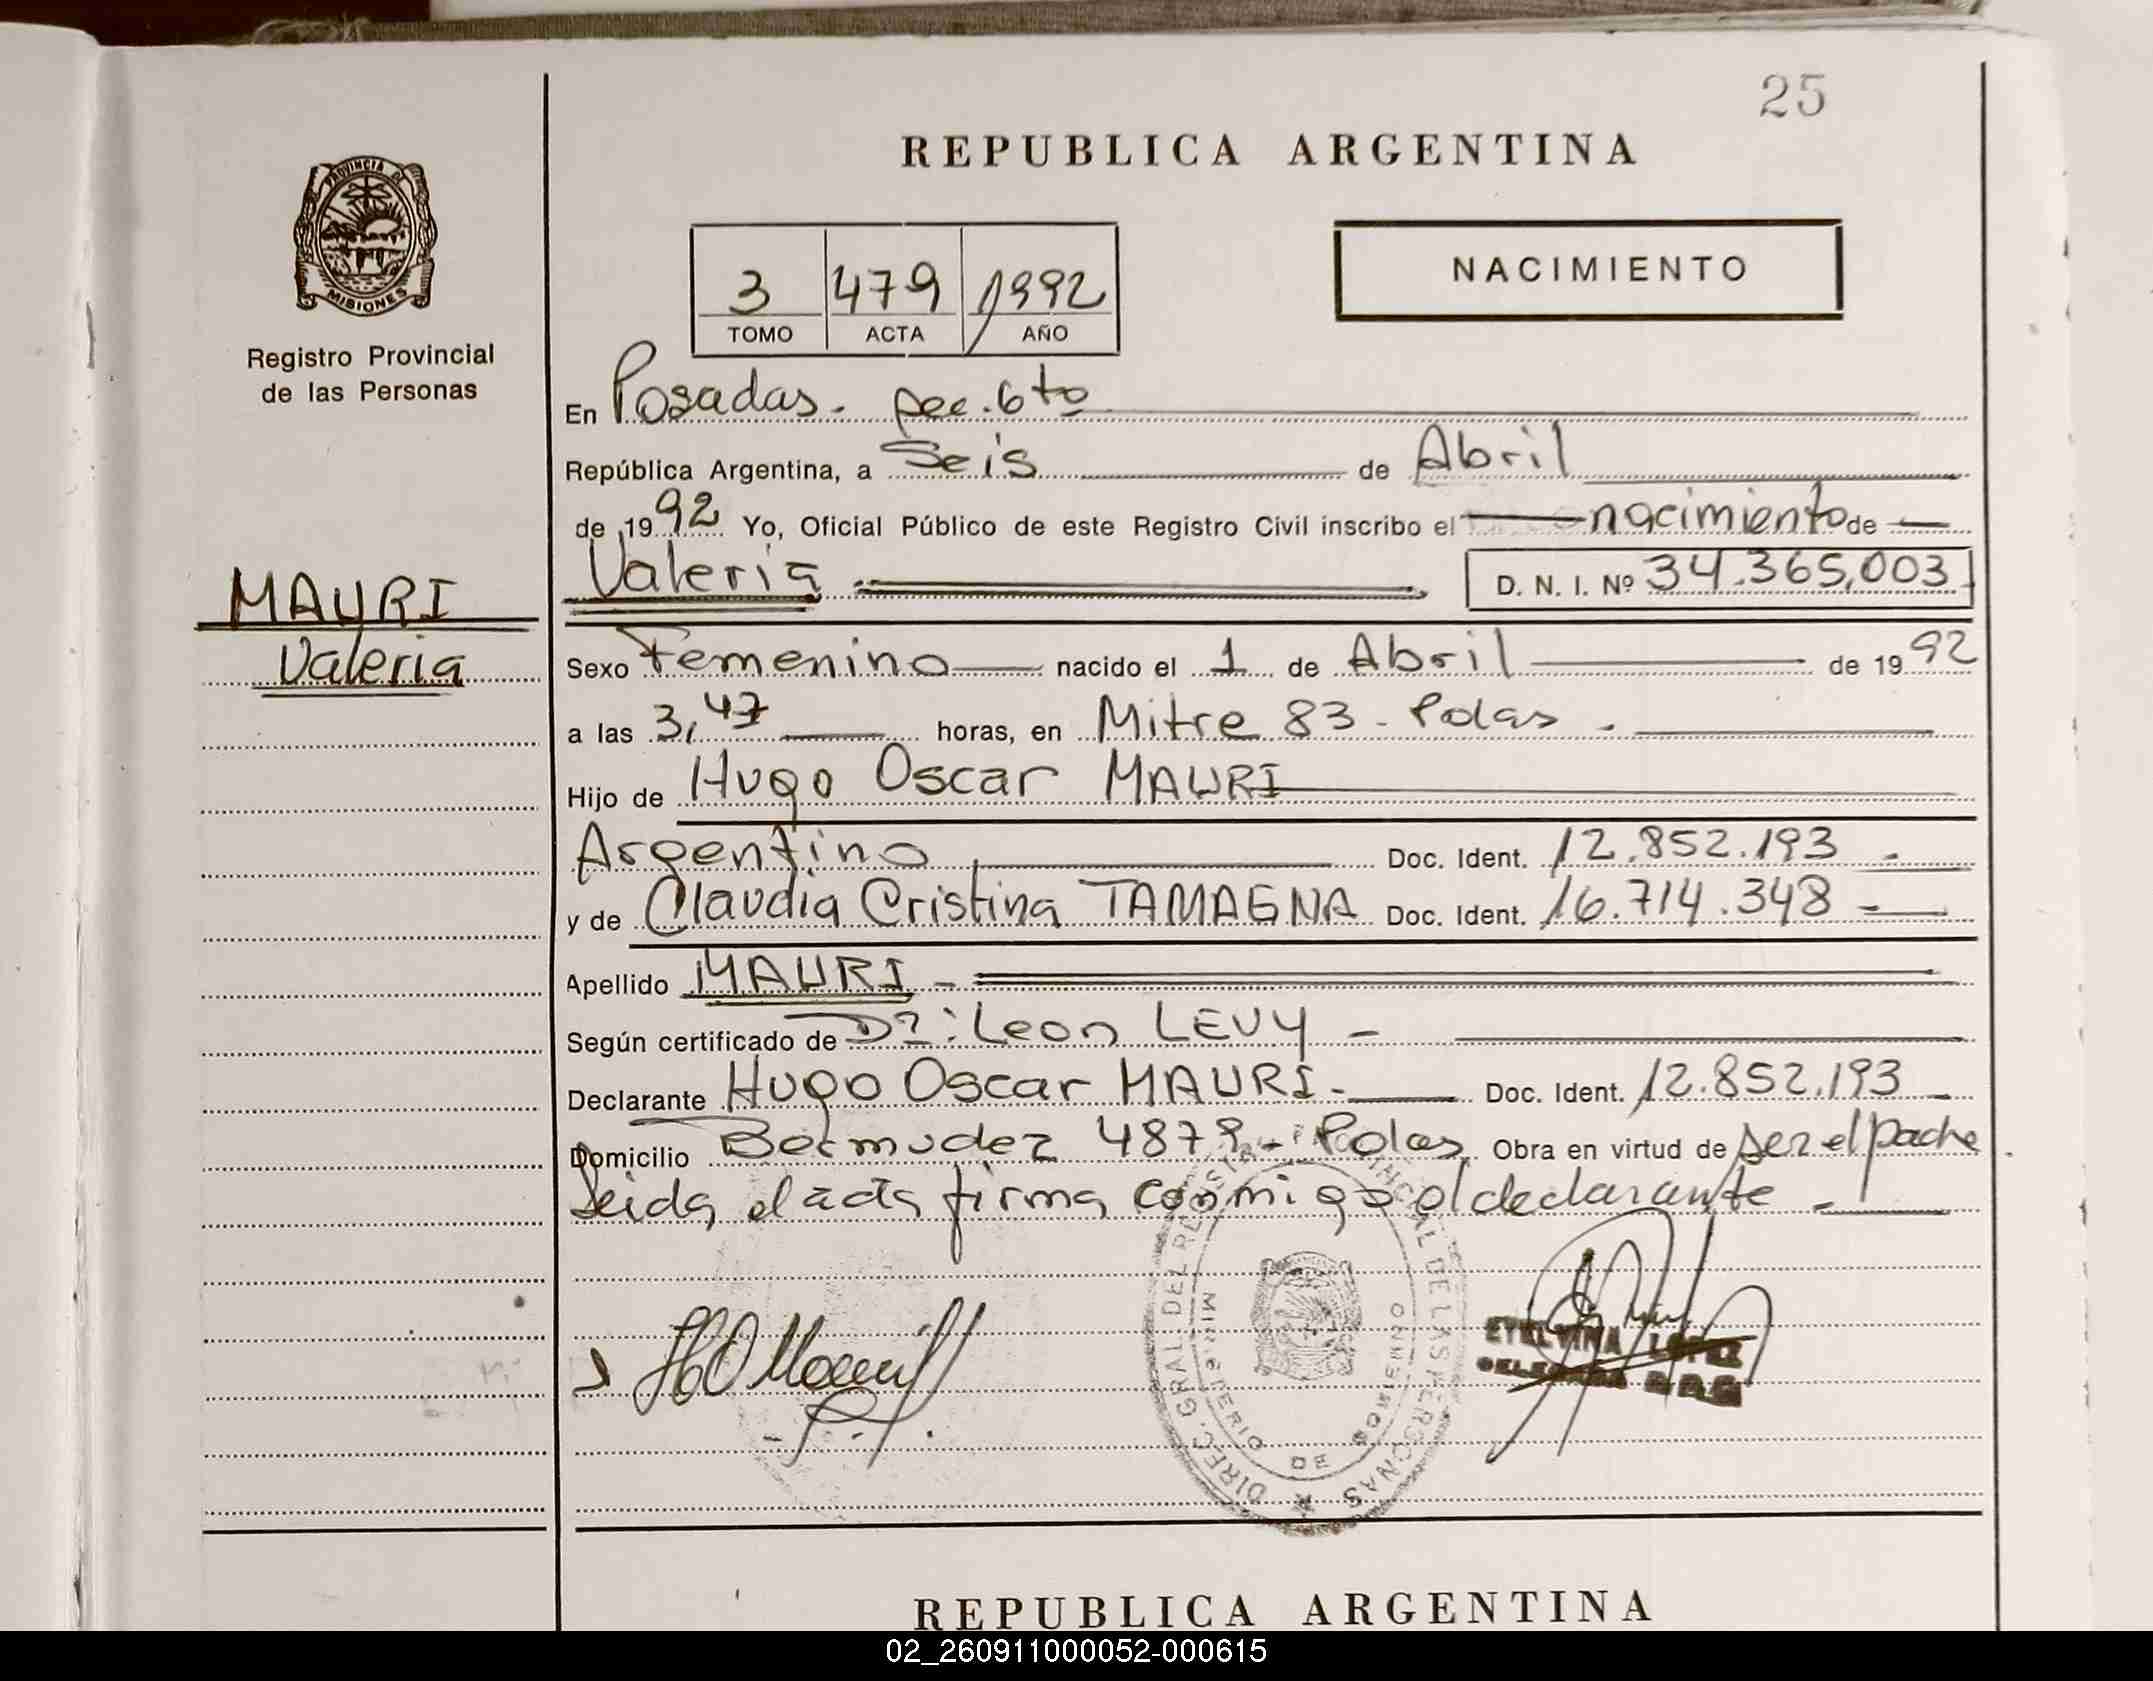 25
REPUBLICA ARGENTINA
PROVINCIA DE
MISIONES
Registro Provincial
de las Personas
3 479 1992
TOMO ACTA AÑO
NACIMIENTO
En Posadas. sec. 6to
República Argentina, a Seis de Abril
de 1992 Yo, Oficial Público de este Registro Civil inscribo el nacimiento de
MAURI
Valeria
Valeria D. N. I. Nº 34.365.003
Sexo Femenino nacido el 1 de Abril de 1992
a las 3,47 horas, en Mitre 83 - Pdas.
Hijo de Hugo Oscar MAURI
Argentino Doc. Ident. 12.852.193
y de Claudia Cristina TAMAGNA Doc. Ident. 16.714.348
Apellido MAURI
Según certificado de Dr: Leon LEVY
Declarante Hugo Oscar MAURI Doc. Ident. 12.852.193
Domicilio Bermudez 4879 - Pdas Obra en virtud de ser el padre
Leida el acta firma conmigo el declarante
DIREC. GRAL DEL REGISTRO PROVINCIAL DE LAS PERSONAS
MINISTERIO DE GOBIERNO
ETELVINA LOPEZ
REPUBLICA ARGENTINA
02_260911000052-000615